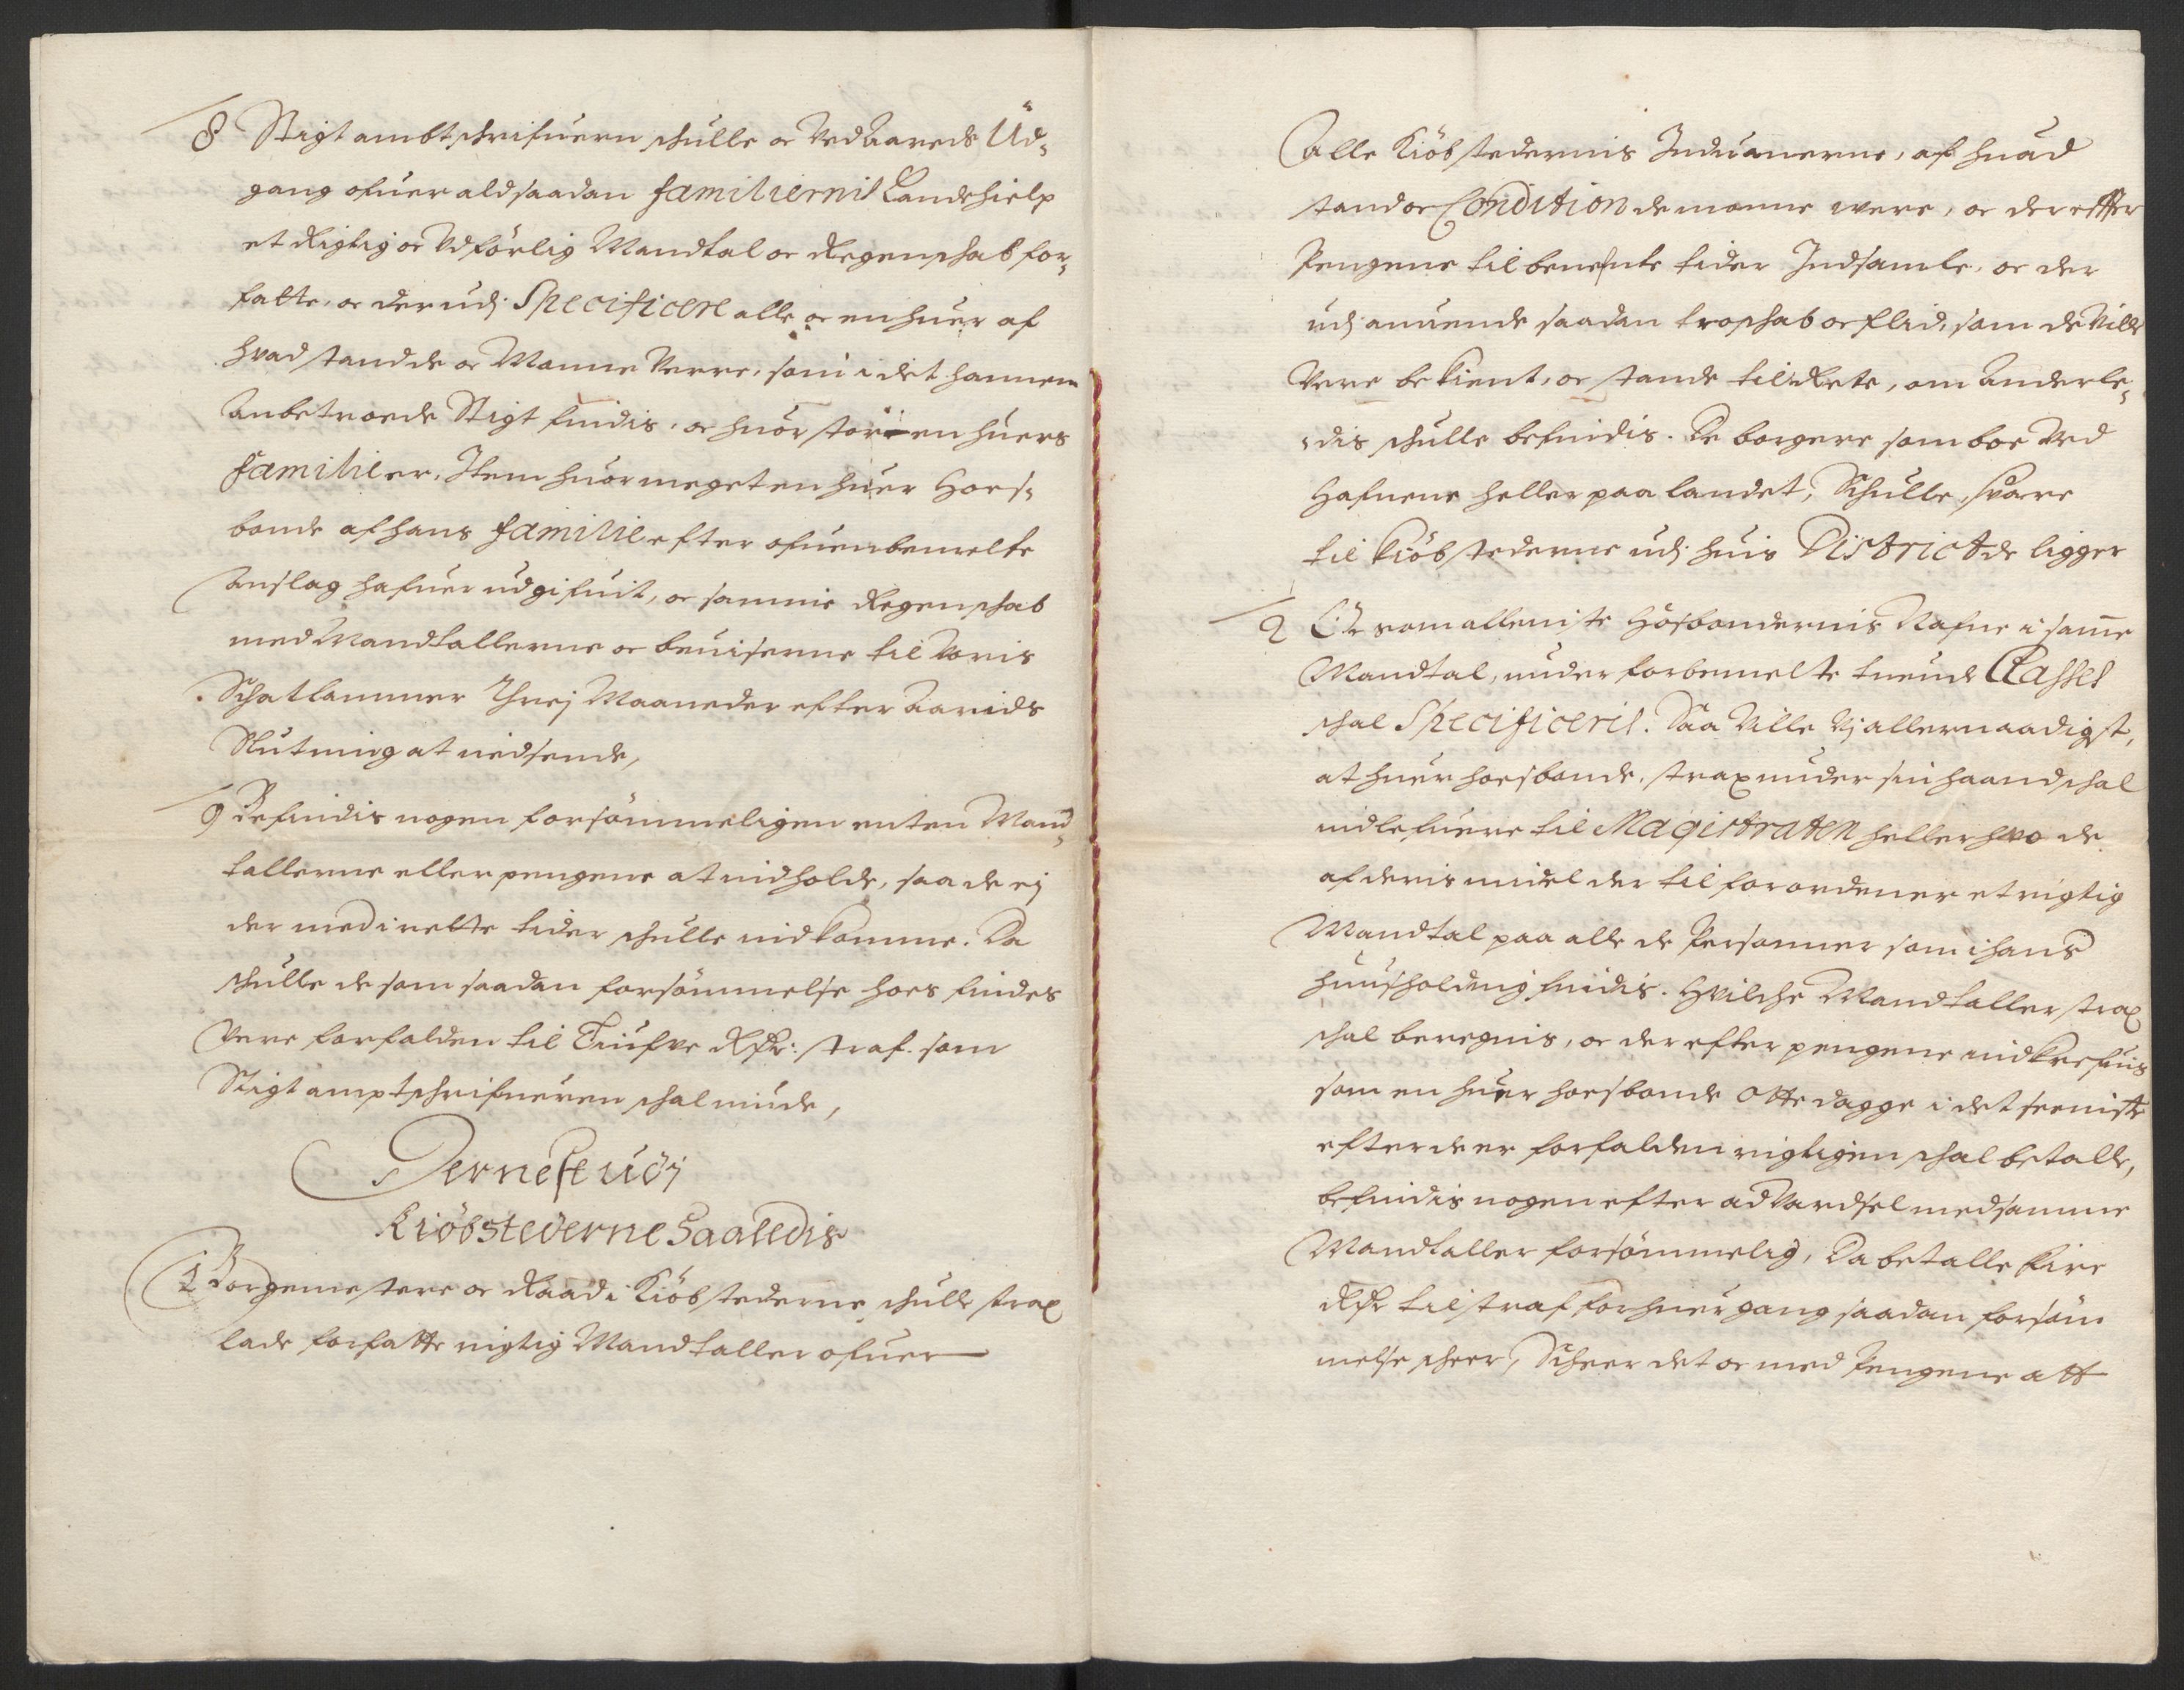 8 Stigt ambtschrifuern schulle oc Ved Aareds Ud-
gang ofuer ald saadan familiernis Landehielp
et Rigtig oc Vdförlig Mandtal oc Regenschab for-
fatte, oc der udj Specificere alle oc en huer af
hvad stand de oc Monne Verre, som i det hannem
Anbetroede Stigt findis, oc huor stor en huers
familie er, Item huor meget en huer Hoes-
bonde af hans familie efter ofuenbemelte
Anslag hafuer udgifuit, oc samme Regenschab
med Mandtallerne oc beuiserne til Voris
Schatkammer Threj Maaneder efter Aarids
Slutning at nedsende,
9 Befindis nogen forsömmeligen enten Mand-
tallerne eller pengene at indholde, saa de ej
der med i rette tider schulle indkomme. Da
schulle de som saadan forsömmelse hoes findes
Vere forfalden til Tiufve Rdr: straf. som
Stigtamptschrifueren schal inde,
Derneste udj
Kiöbstederne Saaledis
1 Borgemestere oc Raad i Kiöbstederne schulle strax
lade forfatte rigtig Mandtaller ofuer
alle Kiöbstedernis Induanerne, af huad
stand oc Condition de monne were, oc der effter
Pengene til benefnte tider Indsamle, oc der
udj anuende saadan troschab oc flid, som de Ville
Vere bekient, oc stande til Rete, om Anderle-
dis schulle befindis. De borgere som boe Ved
Hafnene heller paa landet, Schulle svare
til Kiöbstederne udj huis District de ligger
2 Efftersom alleniste Hosbondernis Nafne i samme
Mandtal, under forbemelte tuende Classes
schal Specificeris. Saa Ville Vj allernaadigst,
at huer hoesbonde, strax under sin haand schal
indlefuere til Magistraten heller hvo de
af deris middel der til forordener et rigtig
Mandtal paa alle de Personner som i hans
huusholding findis. Hvilche Mandtaller strax
schal beregnis, oc der efter pengene indkrefuis
som en huer hoesbonde Otte dagge i det seeniste
efter de er forfalden rigtigen schal betalle,
befindis nogen efter advardsel med samme
Mandtaller forsömmelig, Da betalle fire
Rdr til straf for huer gang saadan forsöm
melse scheer, Scheer det oc med Pengene att